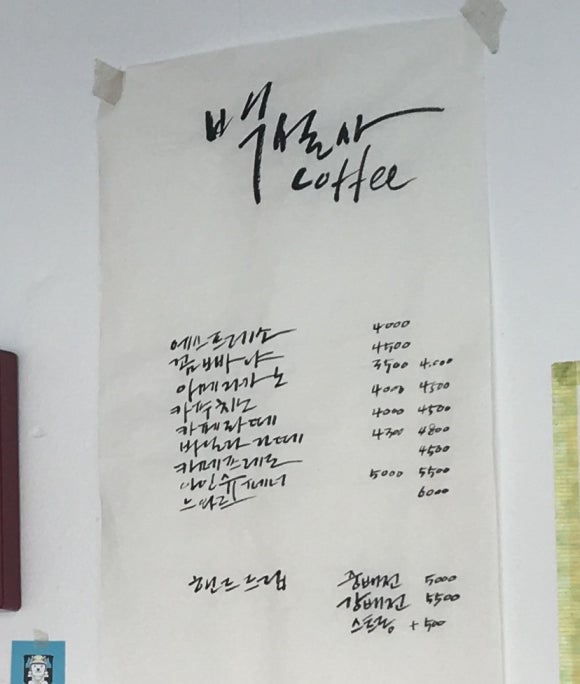 백설사
coffee
에스프레소 4000
꼼빠냐 4500
아메리카노 3500 4000
카푸치노 4000 4500
카페라떼 4000 4500
바닐라라떼 4300 4800
카페프레도 4500
아인슈페너 5000 5500
느와르 6000
핸드드립 중배전 5000
강배전 5500
스트롱 +500